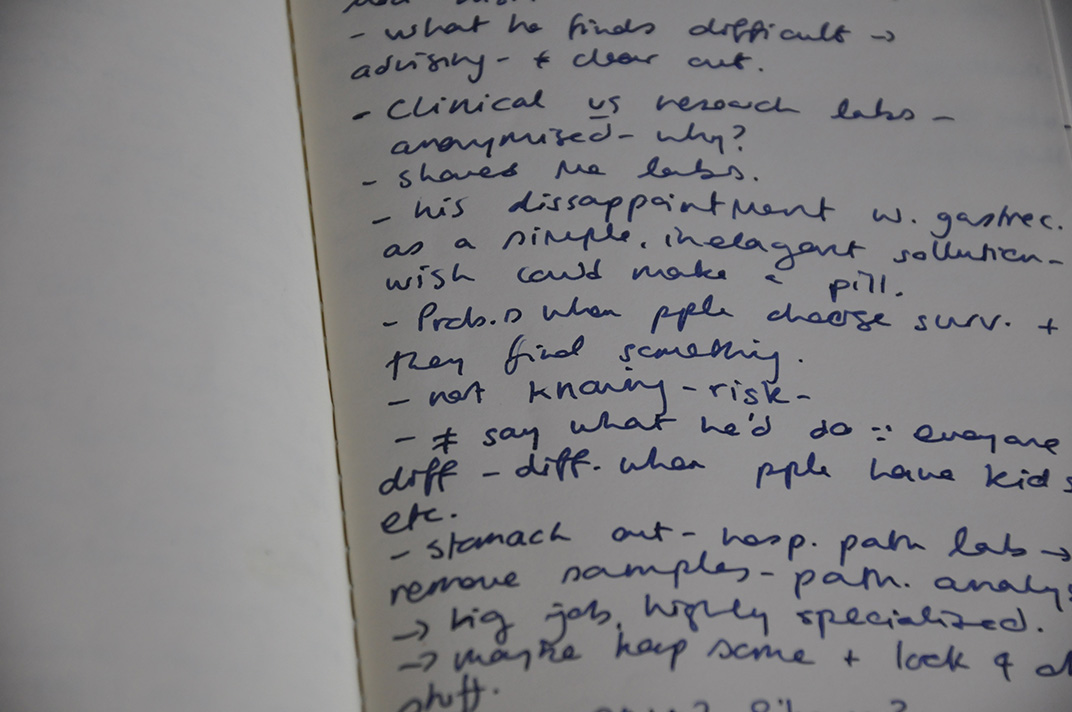 - what he finds difficult →
advising - ≠ clear cut.
- Clinical vs research labs -
anonymised - why?
- showed me labs.
- his dissappointment w. gastrec.
as a simple, inelagant sollution -
wish could make a pill.
- Prob. is when pple choose surv. +
they find something.
- not knowing - risk -
- ≠ say what he'd do ∵ everyone
diff - diff. when pple have kids
etc.
- stomach out - hosp. path lab →
remove samples - path. analys
→ big job, highly specialized.
→ maybe keep some + look 4
stuff.